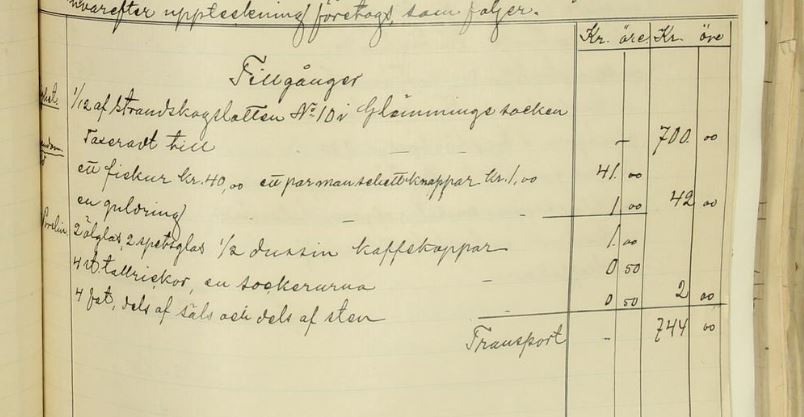 hvarefter uppteckning företogs som följer.
Kr. öre Kr. öre
Tillgångar
1/12 af Strandskogslotten No 10 i Glömminge socken
Taxeradt till — — — 700 00
ett fickur Kr. 40,00 ett par manschettknappar Kr. 1,00 41 00
en guldring — — 1 00 42 00
2 ölglas, 2 spetsglas 1/2 dussin kaffekoppar 1 00
4 st. tallrickor, en sockerurna — 0 50
4 fat, dels af och dels af sten 0 50 2 00
Transport - 744 00